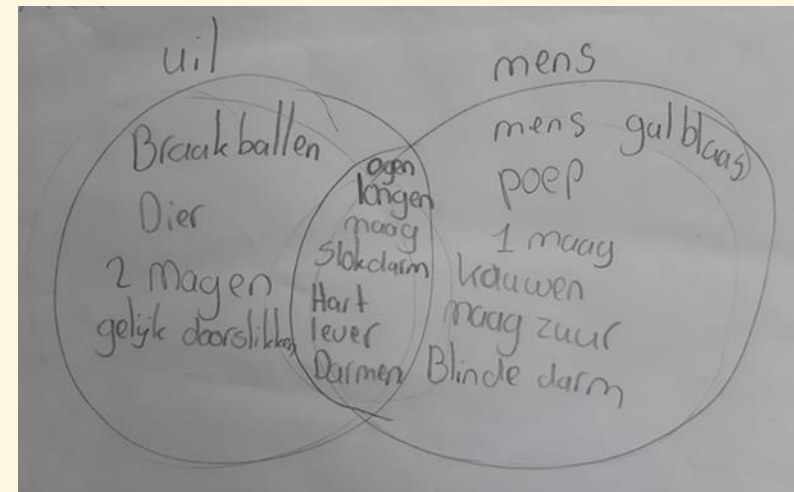 uil
mens
Braakballen
Dier
2 Magen
gelijk doorslikken
ogen
longen
maag
Slokdarm
Hart
lever
Darmen
mens galblaas
poep
1 maag
kauwen
maag zuur
Blinde darm